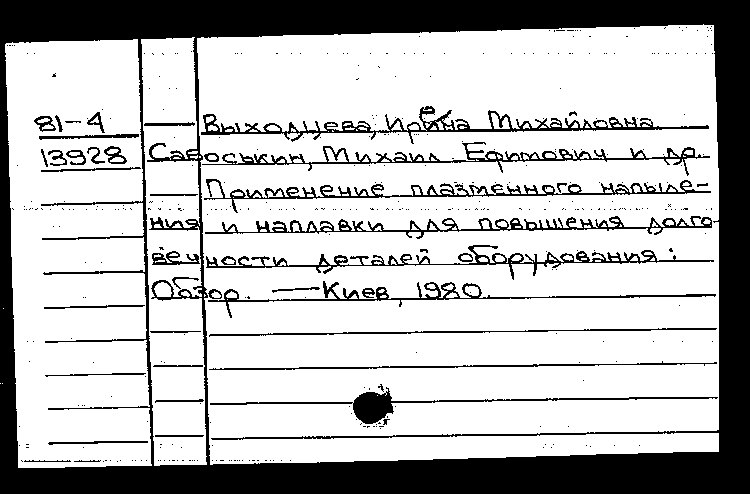 81-4 — Выходцева, Ирена Михайловна
13928 Савоськин, Михаил Ефимович и др.
Применение плазменного напыле-
ния и наплавки для повышения долго-
вечности деталей оборудования:
Обзор. — Киев, 1980.